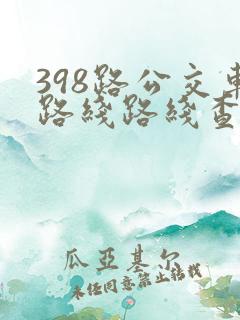 398路公交車
路綫路綫查
瓜亞基尔
未经同意禁止转载